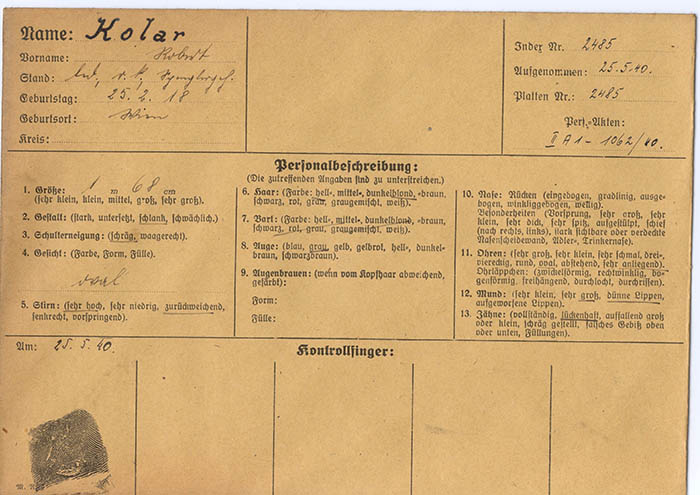 Name: Kolar
Vorname: Robert
Stand: led, r. k., Spenglergeh.
Geburtstag: 25. 2. 18
Geburtsort: Wien
Kreis:
Index Nr. 2485
Aufgenommen: 25.5.40.
Platten Nr.: 2485
Pers.-Akten:
II A1 - 1062/40.
Personalbeschreibung:
(Die zutreffenden Angaben sind zu unterstreichen.)
1. Größe: 1 m 68 cm
(sehr klein, klein, mittel, groß, sehr groß).
2. Gestalt: (stark, untersetzt, schlank, schwächlich).
3. Schulterneigung: (schräg, waagerecht).
4. Gesicht: (Farbe, Form, Fülle)
oval
5. Stirn: (sehr hoch, sehr niedrig, zurückweichend,
senkrecht, vorspringend).
6. Haar: (Farbe: hell-, mittel-, dunkelblond, -braun,
schwarz, rot, grau, graugemischt, weiß).
7. Bart: (Farbe: hell-, mittel-, dunkelblond, -braun,
schwarz, rot, grau, graugemischt, weiß).
8. Auge: (blau, grau, gelb, gelbrot, hell-, dunkel-
braun, schwarzbraun).
9. Augenbrauen: (wenn vom Kopfhaar abweichend,
gefärbt):
Form:
Fülle:
10. Nase: Rücken (eingebogen, gradlinig, ausge-
bogen, winkliggebogen, wellig).
Besonderheiten (Vorsprung, sehr groß, sehr
klein, sehr dick, sehr spitz, aufgestülpt, schief
(nach rechts, links), stark sichtbare oder verdeckte
Nasenscheidewand, Adler-, Trinkernase).
11. Ohren: (sehr groß, sehr klein, sehr schmal, drei-,
viereckig, rund, oval, abstehend, sehr anliegend).
Ohrläppchen: (zwickelförmig, rechtwinklig, bo-
genförmig, freihängend, durchlocht, durchrissen).
12. Mund: (sehr klein, sehr groß, dünne Lippen,
aufgeworfene Lippen).
13. Zähne: (vollständig, lückenhaft, auffallend groß
oder klein, schräg gestellt, falsches Gebiß oben
oder unten, Füllungen).
Am: 25. 5. 40.
Kontrollfinger: